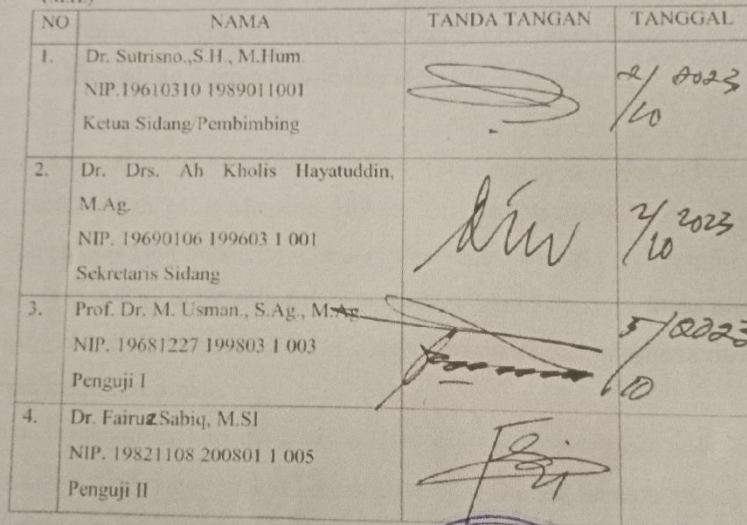 NO NAMA TANDA TANGAN TANGGAL
1. Dr. Sutrisno.,S.H., M.Hum.
NIP.19610310 1989011001
Ketua Sidang/Pembimbing
2/10 2023
2. Dr. Drs. Ah Kholis Hayatuddin,
M.Ag.
NIP. 19690106 199603 1 001
Sekretaris Sidang
2/10 2023
3. Prof. Dr. M. Usman., S.Ag., M.Ag
NIP. 19681227 199803 1 003
Penguji I
5/10 2023
4. Dr. Fairuz Sabiq, M.SI
NIP. 19821108 200801 1 005
Penguji II